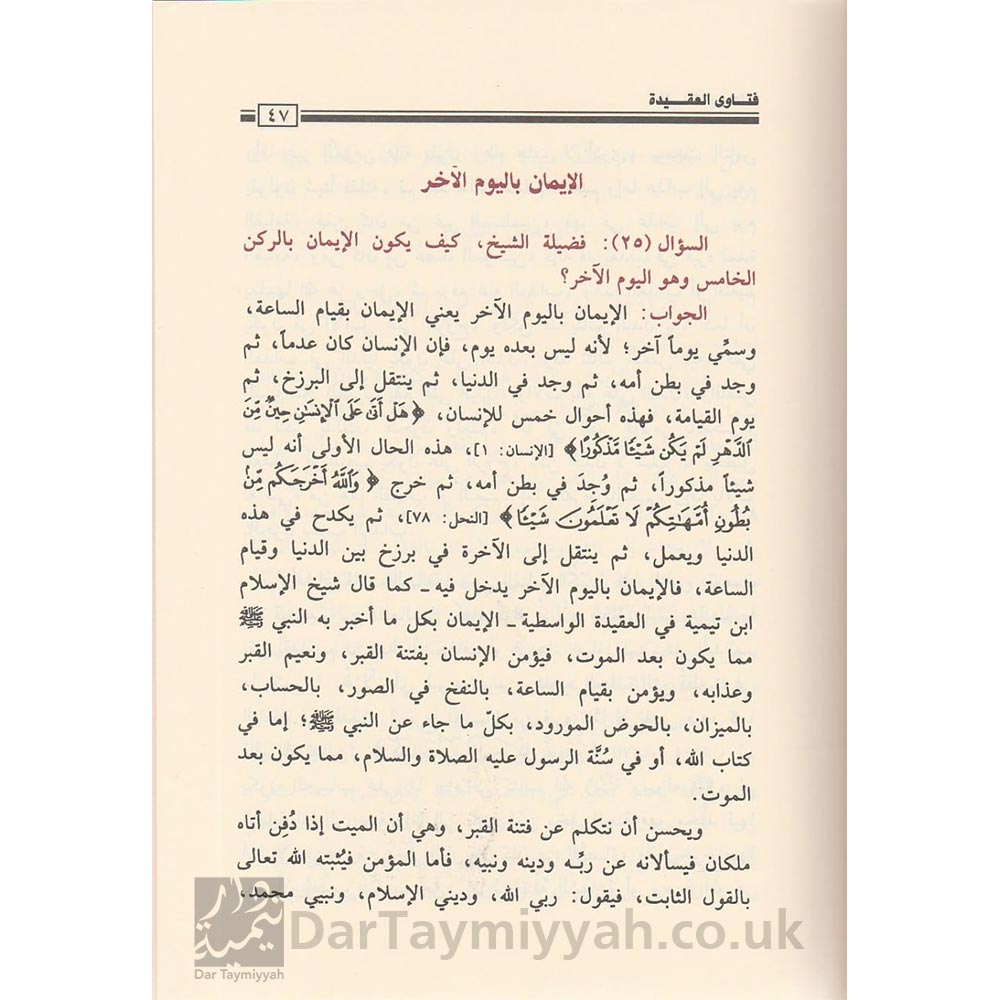 فتاوى العقيدة
٤٧
الإيمان باليوم الآخر
السؤال (٢٥): فضيلة الشيخ، كيف يكون الإيمان بالركن
الخامس وهو اليوم الآخر؟
الجواب: الإيمان باليوم الآخر يعني الإيمان بقيام الساعة،
وسمِّي يوماً آخر؛ لأنه ليس بعده يوم، فإن الإنسان كان عدماً، ثم
وجد في بطن أمه، ثم وجد في الدنيا، ثم ينتقل إلى البرزخ، ثم
يوم القيامة، فهذه أحوال خمس للإنسان، ﴿هَلْ أَتَىٰ عَلَى ٱلْإِنسَٰنِ حِينٌ مِّنَ
ٱلدَّهْرِ لَمْ يَكُن شَيْـًٔا مَّذْكُورًا﴾ [الإنسان: ١]، هذه الحال الأولى أنه ليس
شيئاً مذكوراً، ثم وُجِدَ في بطن أمه، ثم خرج ﴿وَٱللَّهُ أَخْرَجَكُم مِّنۢ
بُطُونِ أُمَّهَٰتِكُمْ لَا تَعْلَمُونَ شَيْـًٔا﴾ [النحل: ٧٨]، ثم يكدح في هذه
الدنيا ويعمل، ثم ينتقل إلى الآخرة في برزخ بين الدنيا وقيام
الساعة، فالإيمان باليوم الآخر يدخل فيه ـ كما قال شيخ الإسلام
ابن تيمية في العقيدة الواسطية ـ الإيمان بكل ما أخبر به النبي ﷺ
مما يكون بعد الموت، فيؤمن الإنسان بفتنة القبر، ونعيم القبر
وعذابه، ويؤمن بقيام الساعة، بالنفخ في الصور، بالحساب،
بالميزان، بالحوض المورود، بكلّ ما جاء عن النبي ﷺ؛ إما في
كتاب الله، أو في سُنَّة الرسول عليه الصلاة والسلام، مما يكون بعد
الموت.
ويحسن أن نتكلم عن فتنة القبر، وهي أن الميت إذا دُفِن أتاه
ملكان فيسألانه عن ربِّه ودينه ونبيه، فأما المؤمن فيُثبته الله تعالى
بالقول الثابت، فيقول: ربي الله، وديني الإسلام، ونبيي محمد،
دار تيمية
Dar Taymiyyah
DarTaymiyyah.co.uk